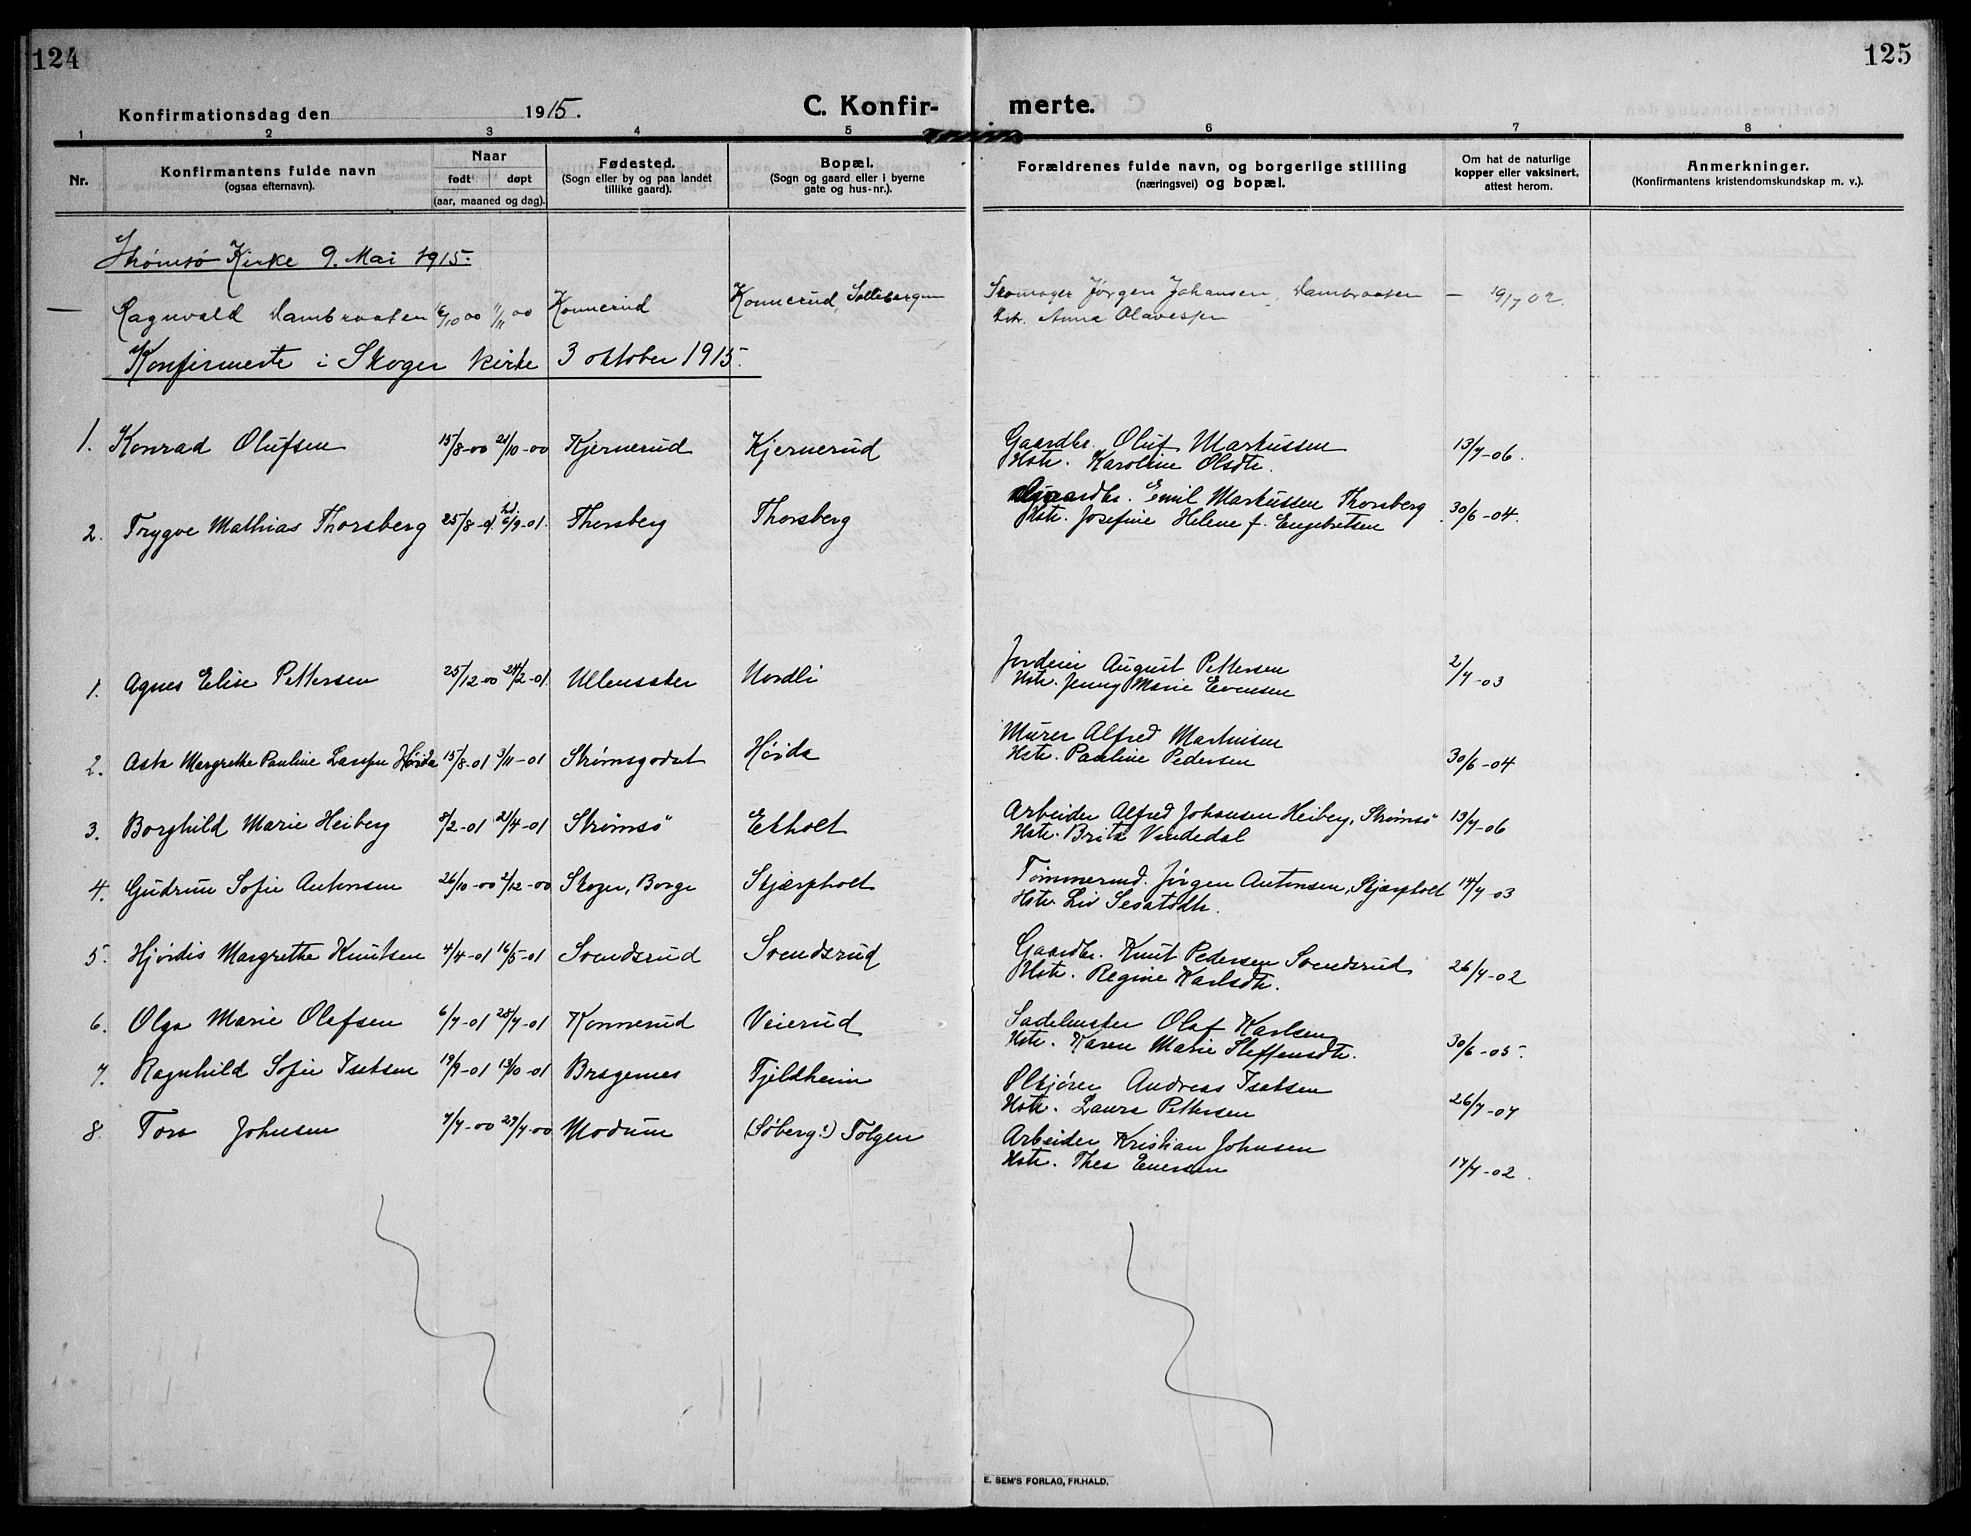 124
125
Konfirmationsdag den 1915.
C. Konfir-
merte.
1 2 3 4 5 6 7 8
Nr.
Konfirmantens fulde navn
(ogsaa efternavn).
Naar
født døpt
(aar, maaned og dag).
Fødested.
(Sogn eller by og paa landet
tillike gaard).
Bopæl.
(Sogn og gaard eller i byerne
gate og hus-nr.).
Forældrenes fulde navn, og borgerlige stilling
(næringsvei) og bopæl.
Om hat de naturlige
kopper eller vaksinert,
attest herom.
Anmerkninger.
(Konfirmantens kristendomskundskap m. v.).
Strømsø Kirke 9. Mai 1915.
— Ragnvald Dambraaten 16/10 00 11/11 00 Konnerud Konnerud, Solbergern Skomager Jørgen Johansen, Dambraaten — 19/7 02.
Hstr. Anna Olavesen
Konfirmerte i Skoger kirke 3 oktober 1915.
1. Konrad Olufsen 15/8-00 21/10-00 Kjernerud Kjernerud Gaardbr. Oluf Markussen 13/7-06.
Hstr. Karoline Olsdtr.
2. Trygve Mathias Thorsberg 25/8-01. hd. 6/9-01. Thorsberg Thorsberg Gaardbr. Emil Markussen Thorsberg 30/6-04.
Hstr. Josefine Helene f. Engebretsen
1. Agnes Elise Pettersen 25/12-00 24/2-01. Ullensaker Nordli Jordeier August Pettersen 2/7-03
Hstr. Jenny Marie Evensen
2. Asta Margrethe Pauline Larsen Høida 15/8-01 3/11-01 Strømsgodset Høida Murer Alfred Martinisen 30/6-04
Hstr. Pauline Pedersen
3. Borghild Marie Heiberg 8/2-01 21/4-01 Strømsö Ekholt Arbeider Alfred Johansen Heiberg, Strømsö 13/7-06
Hstr. Brita Vindedal
4. Gudrun Sofie Antonsen 26/10-00 2/12-00 Skoger, Borge Skjærpholt Tømmermd. Jørgen Antonsen, Skjærpholt 14/7-03
Hstr. Liv Sesatsdtr.
5. Hjørdis Margrethe Knutsen 4/4-01 16/5-01 Svendsrud Svendsrud Gaardbr. Knut Pedersen Svendsrud 26/7-02
Hstr. Regine Karlsdtr.
6. Olga Marie Olafsen 6/7-01 28/7-01 Konnerud Veierud Sadelmaker Olaf Karlsen 30/6-05.
Hstr. Karen Marie Steffensdtr.
7. Ragnhild Sofie Isaksen 19/9-01 13/10-01 Bragernes Fjeldheim Ølkjører Andreas Isaksen 26/7-07
Hstr. Laura Pettersen
8. Tora Johnsen 7/7-00 29/7-00 Modum (Søberg!) Tolgen Arbeider Kristian Johnsen 17/7-02.
Hstr. Thea Evensen
E. SEM'S FORLAG, FR.HALD.